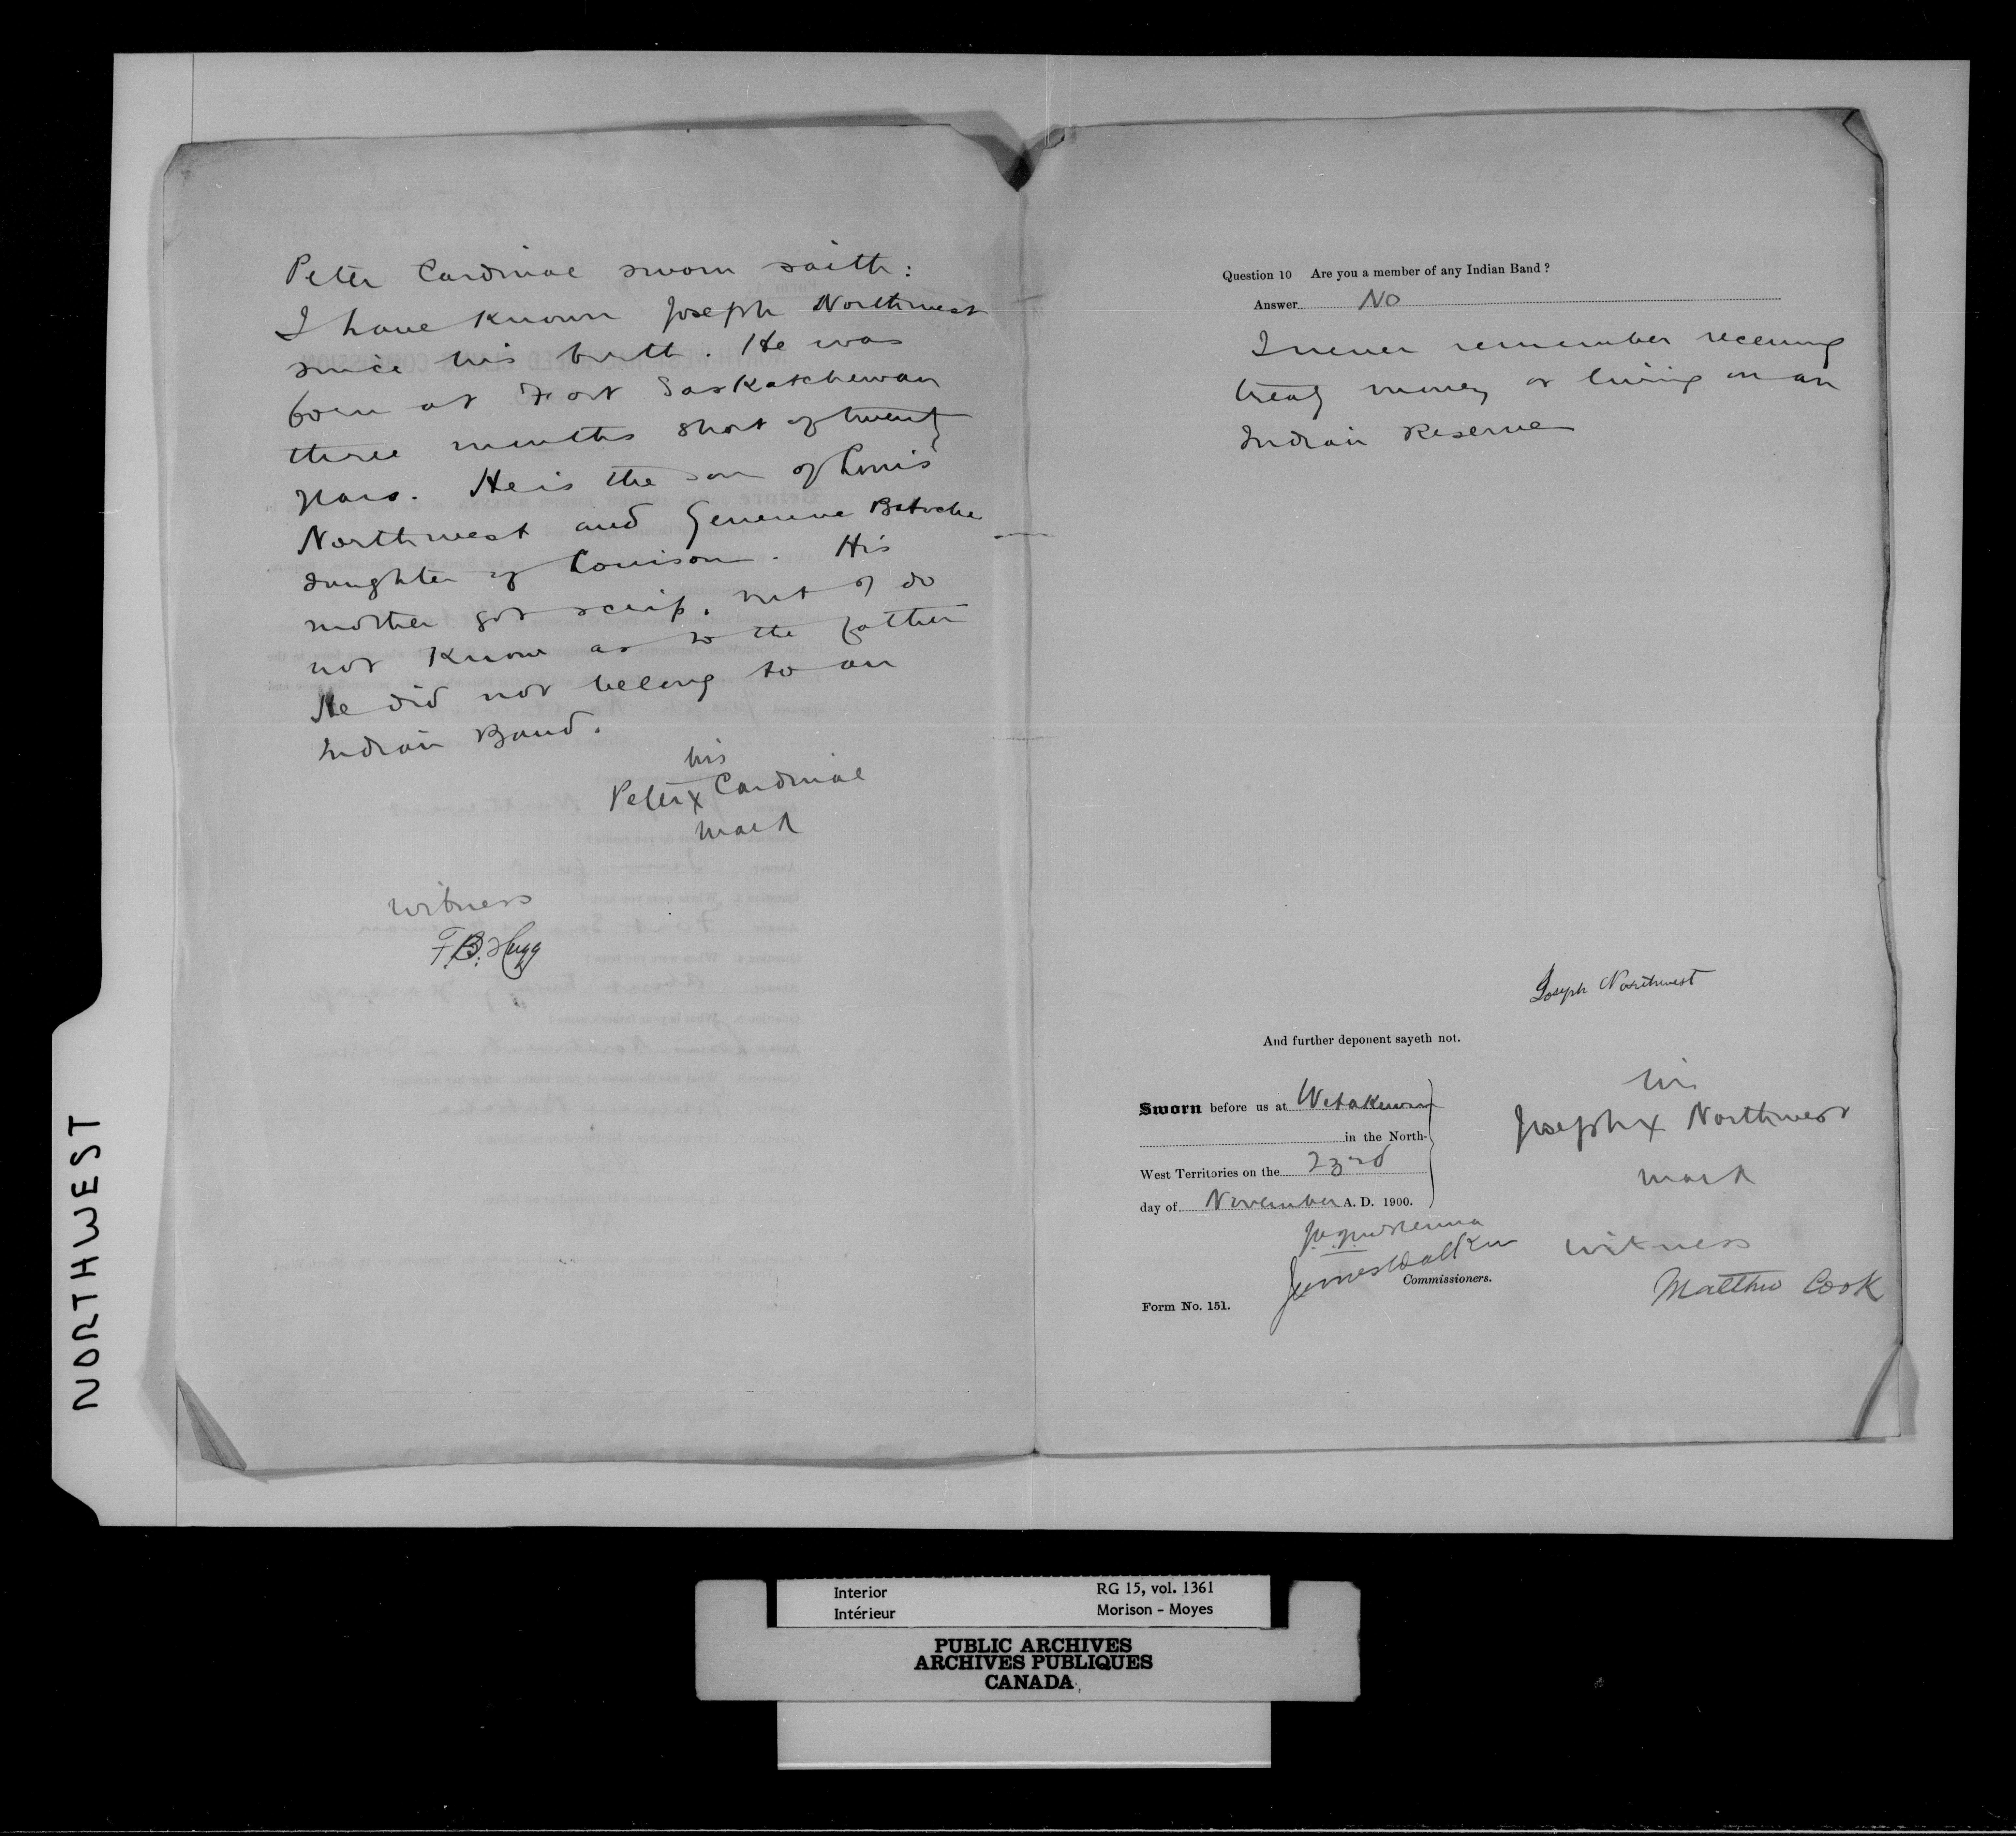 Peter Cardinal sworn saith:
I have known Joseph Northwest
since his birth. He was
born at Fort Saskatchewan
three months short of twenty
years. He is the son of Louis
Northwest and Genevieve Batoche
daughter of Louison. His
mother got scrip. but I do
not know as to the father
He did not belong to an
Indian Band.
his
Peter X Cardinal
mark
witness
F.B.
Question 10 Are you a member of any Indian Band?
Answer No
I never remember receiving
treaty money or living on an
Indian Reserve
Joseph Northwest
And further deponent sayeth not.
Sworn before us at Wetakewin
in the North-
West Territories on the 23rd
day of November A. D. 1900.
his
Joseph X Northwest
mark
James Walker
Commissioners.
witness
Matthew Cook
Form No. 151.
NORTHWEST
Interior RG 15, vol. 1361
Intérieur Morison - Moyes
PUBLIC ARCHIVES
ARCHIVES PUBLIQUES
CANADA